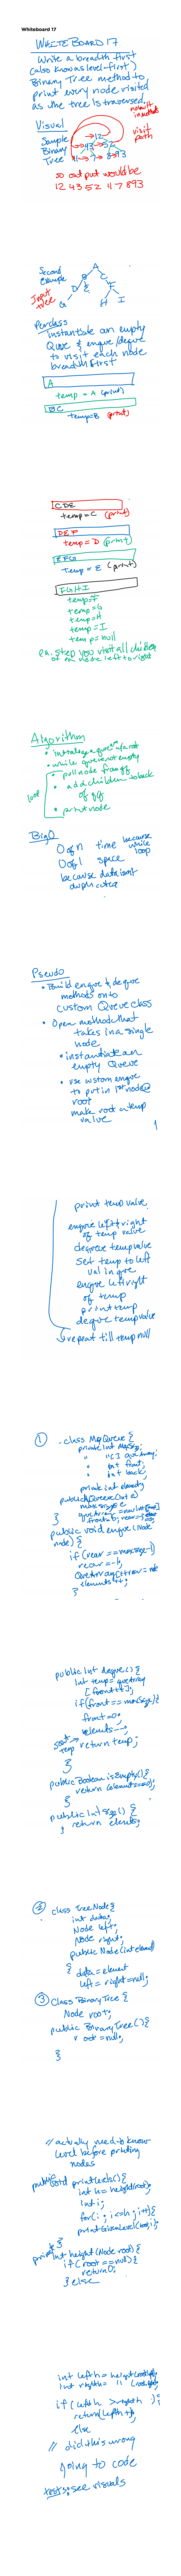 Whiteboard 17
WHITEBOARD 17
Write a breadth first
(also known as level-first)
Binary Tree method to
print every node visited
as the tree is traversed.
Visual
Sample
Binary
Tree
visit
path
12
43 52
4 7 8 93
so output would be
12 43 52 4 7 8 93
Second
Example
Input
tree
A
B C
D E F
G H I
Process
instantiate an empty
Queue & enque/deque
to visit each node
breadth first
A
temp = A (print)
BC
temp=B (print)
CDE
temp=C (print)
DEF
temp= D (print)
EFG
Temp = E (print)
FGHI
temp=F
temp=G
temp=H
temp=I
temp=null
ea. step you visit all children
of ea. node left to right
Algorithm
while que not empty
loop
poll node from q
add children to back
of q
print node
BigO
O of n time because
while
loop
O of 1 space
because data isn't
duplicated
Pseudo
• Build enque & deque
methods onto
custom Queue class
• Open method that
takes in a single
node
• instantiate an
empty Queue
• use custom enque
to put in 1st node @
root
make root a temp
value
print temp value
enque left & right
of temp value
deqeue temp value
set temp to left
val in que
enque left/right
of temp
print temp
deque temp value
repeat till temp null
① class MyQueue {
private int MaxSize;
" int[] queArray;
" int front;
" int back;
private int elements
maxsize = s
public void enque (Node
node) {
if (rear == maxsize-1)
rear = -1;
QueArray[++rear] = node
elements++;
}
public int deque() {
int temp = queArray
[front++];
if(front == maxSize){
front=0;
elements--;
return temp;
}
public Boolean isEmpty() {
return (elements==0);
}
public int size() {
return elements;
}
② class TreeNode {
int data;
Node left;
Node right;
public Node(int element)
{ data = element
left = right = null;
③ Class BinaryTree {
Node root;
public BinaryTree() {
root = null;
}
// actually need to know
level before printing
nodes
public void printLevels() {
int h = height(root);
int i;
for(i; i<=h; i++){
printGivenLevel(root,i);
}
int height (Node root) {
if (root == null) {
return 0;
} else
int left h = height(root.left);
int right h = " (root.right);
if (left h > right h)
return (left h + 1);
else
// did this wrong
going to code
tests: see visuals